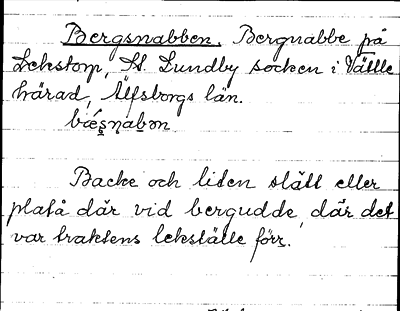 Bergsnabben. Bergnabbe på
Lekstorp, St Lundby socken i Vättle
härad, Älfsborgs län.
Backe och liten slätt eller
platå där vid bergudde, där det
var traktens lekställe förr.